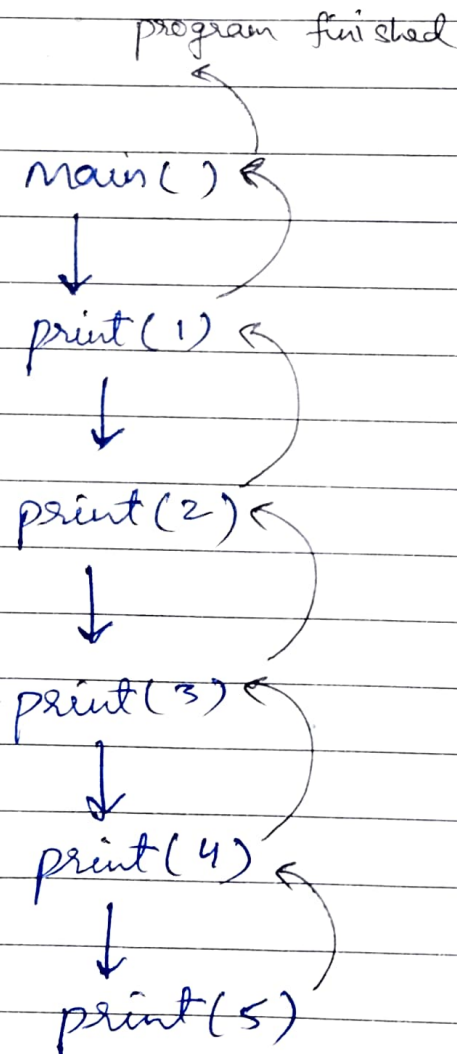 program finished
main()
print(1)
print(2)
print(3)
print(4)
print(5)